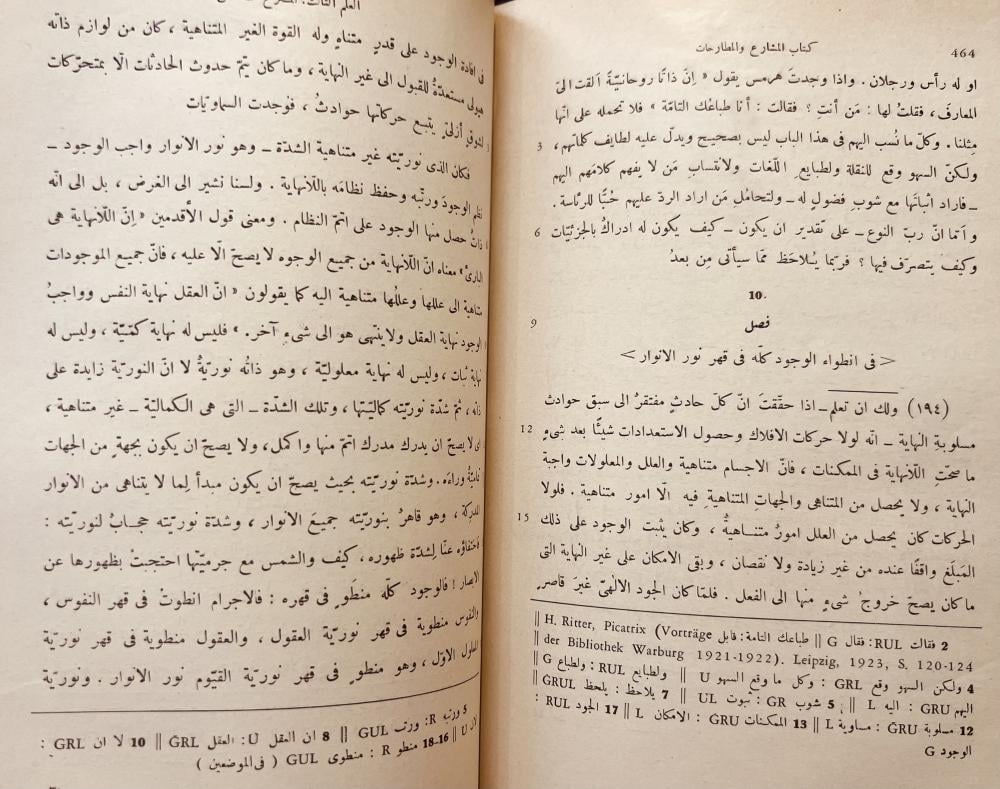 464
كتاب المشارع والمطارحات
او له رأس ورجلان . واذا وجدتَ هرمس يقول « اِنّ ذاتا روحانيّة ألقت الىّ
المعارفَ ، فقلتُ لها : مَن أنتِ ؟ فقالت : أنا طباعك التامّة » فلا تحمله على انّها
3 مِثلنا . وكلّ ما نُسب اليهم فى هذا الباب ليس بصحيح ويدلّ عليه لطايف كلماتهم ،
ولكنّ السهو وقع للنقلة ولطبايع اللّغات ولانتسابِ مَن لا يفهم كلامَهم اليهم
ــ فاراد اثباتَها مع شوبِ فضولٍ له ــ ولتحاملِ مَن اراد الردّ عليهم حُبًّا للرئاسة .
6 وأتما انّ ربّ النوع ــ على تقدير ان يكون ــ كيف يكون له ادراكٌ بالجزئيّات
وكيف يتصرّف فيها ؟ فربّما يُلاحَظ ممّا سيأتى مِن بعدُ
10.
9 فصل
< فى انطواء الوجود كلّه فى قهر نور الانوار >
(١٩٤) ولك ان تعلم ــ اذا حقّقتَ انّ كلّ حادثٍ مفتقرٌ الى سبق حوادث
12 مسلوبةِ النهاية ــ انّه لولا حركات الافلاك وحصول الاستعدادات شيئًا بعد شىءٍ
ما صحّتِ اللّانهاية فى الممكنات ، فانّ الاجسام متناهية والعلل والمعلولات واجبة
النهاية ، ولا يحصل من المتناهى والجهات المتناهيةِ فيه الّا امور متناهية . فلولا
15 الحركات كان يحصل من العلل امورٌ متناهيةٌ ، وكان يثبت الوجود على ذلك
المَبلَغ واقفًا عنده من غير زيادة ولا نقصان ، وبقى الامكان على غير النهاية التى
ما كان يصحّ خروجُ شىءٍ منها الى الفعل . فلمّا كان الجود الالٰهىّ غيرَ قاصرٍ
2 فقالت RUL: فقال G || طباعك التامة: قابل H. Ritter, Picatrix (Vorträge ||
der Bibliothek Warburg 1921-1922). Leipzig, 1923, S. 120-124 ||
4 ولكن السهو وقع GRL : وكل ما وقع السهو U || ولطبايع RUL : ولطباع G ||
اليهم GRU : اليه L || 5 شوب GR : ثبوت UL || 7 يلاحظ : يلحظ GRUL ||
12 مسلوبة GRU : مساوية L || 13 الممكنات GRU : الامكان L || 17 الجود RUL :
الوجود G
فى افادة الوجود على قدرٍ متناهٍ وله القوة الغير المتناهية ، كان من لوازم ذاته
هيولى مستعدّةٌ للقبول الى غير النهاية ، وما كان يتمّ حدوث الحادثات الّا بمتحرّكات
يتبع حركاتها حوادثُ ، فوُجدت السماويّات
فكان الذى نوريّته غير متناهية الشدّة ــ وهو نور الانوار واجب الوجود ــ
نظم الوجودَ ورتّبه وحفظ نظامَه باللّانهاية . ولسنا نشير الى الغرض ، بل الى انّه
ذاتٌ حصل منها الوجود على اتمّ النظام . ومعنى قول الأقدمين « اِنّ اللّانهاية هى
البارئ » معناه انّ اللّانهاية من جميع الوجوه لا يصحّ الّا عليه ، فانّ جميع الموجودات
متناهية الى عللها وعللُها متناهية اليه كما يقولون « انّ العقل نهاية النفس وواجبُ
الوجود نهاية العقل ولا ينتهى هو الى شىءٍ آخر . » فليس له نهاية كمّيّة ، وليس له
نهاية ثبات ، وليس له نهاية معلوليّة ، وهو ذاتُه نوريّةٌ لا انّ النوريّة زايدة على
ذاته ، ثمّ شدّة نوريّته كماليّتها ، وتلك الشدّة ــ التى هى الكماليّة ــ غير متناهية ،
اى لا يصحّ ان يدرك مدرك اتمّ منها واكمل ، ولا يصحّ ان يكون بجهةٍ من الجهات
وراءَه . وشدّة نوريّته بحيث يصحّ ان يكون مبدأً لِما لا يتناهى من الانوار
المدركة ، وهو قاهرٌ بنوريّته جميعَ الانوار ، وشدّة نوريّته حجابٌ لنوريّته :
اختفاؤه عنّا لِشدّة ظهوره . كيف والشمس مع جرميّتها احتجبتْ بظهورها عن
الأبصار ! فالوجود كلّه منطوٍ فى قهره : فالاجرام انطوتْ فى قهر النفوس ،
والنفوس منطوية فى قهر نوريّة العقول ، والعقول منطوية فى قهر نوريّة
المعلول الاوّل ، وهو منطوٍ فى قهر نوريّة القيّوم نور الانوار . ونوريّة
5 ورتبه R: ورتب GUL || 8 ان العقل U: العقل GRL || 10 لا ان GRL :
لان U || 16-18 منطو R : منطوى GUL ( فى الموضعين )